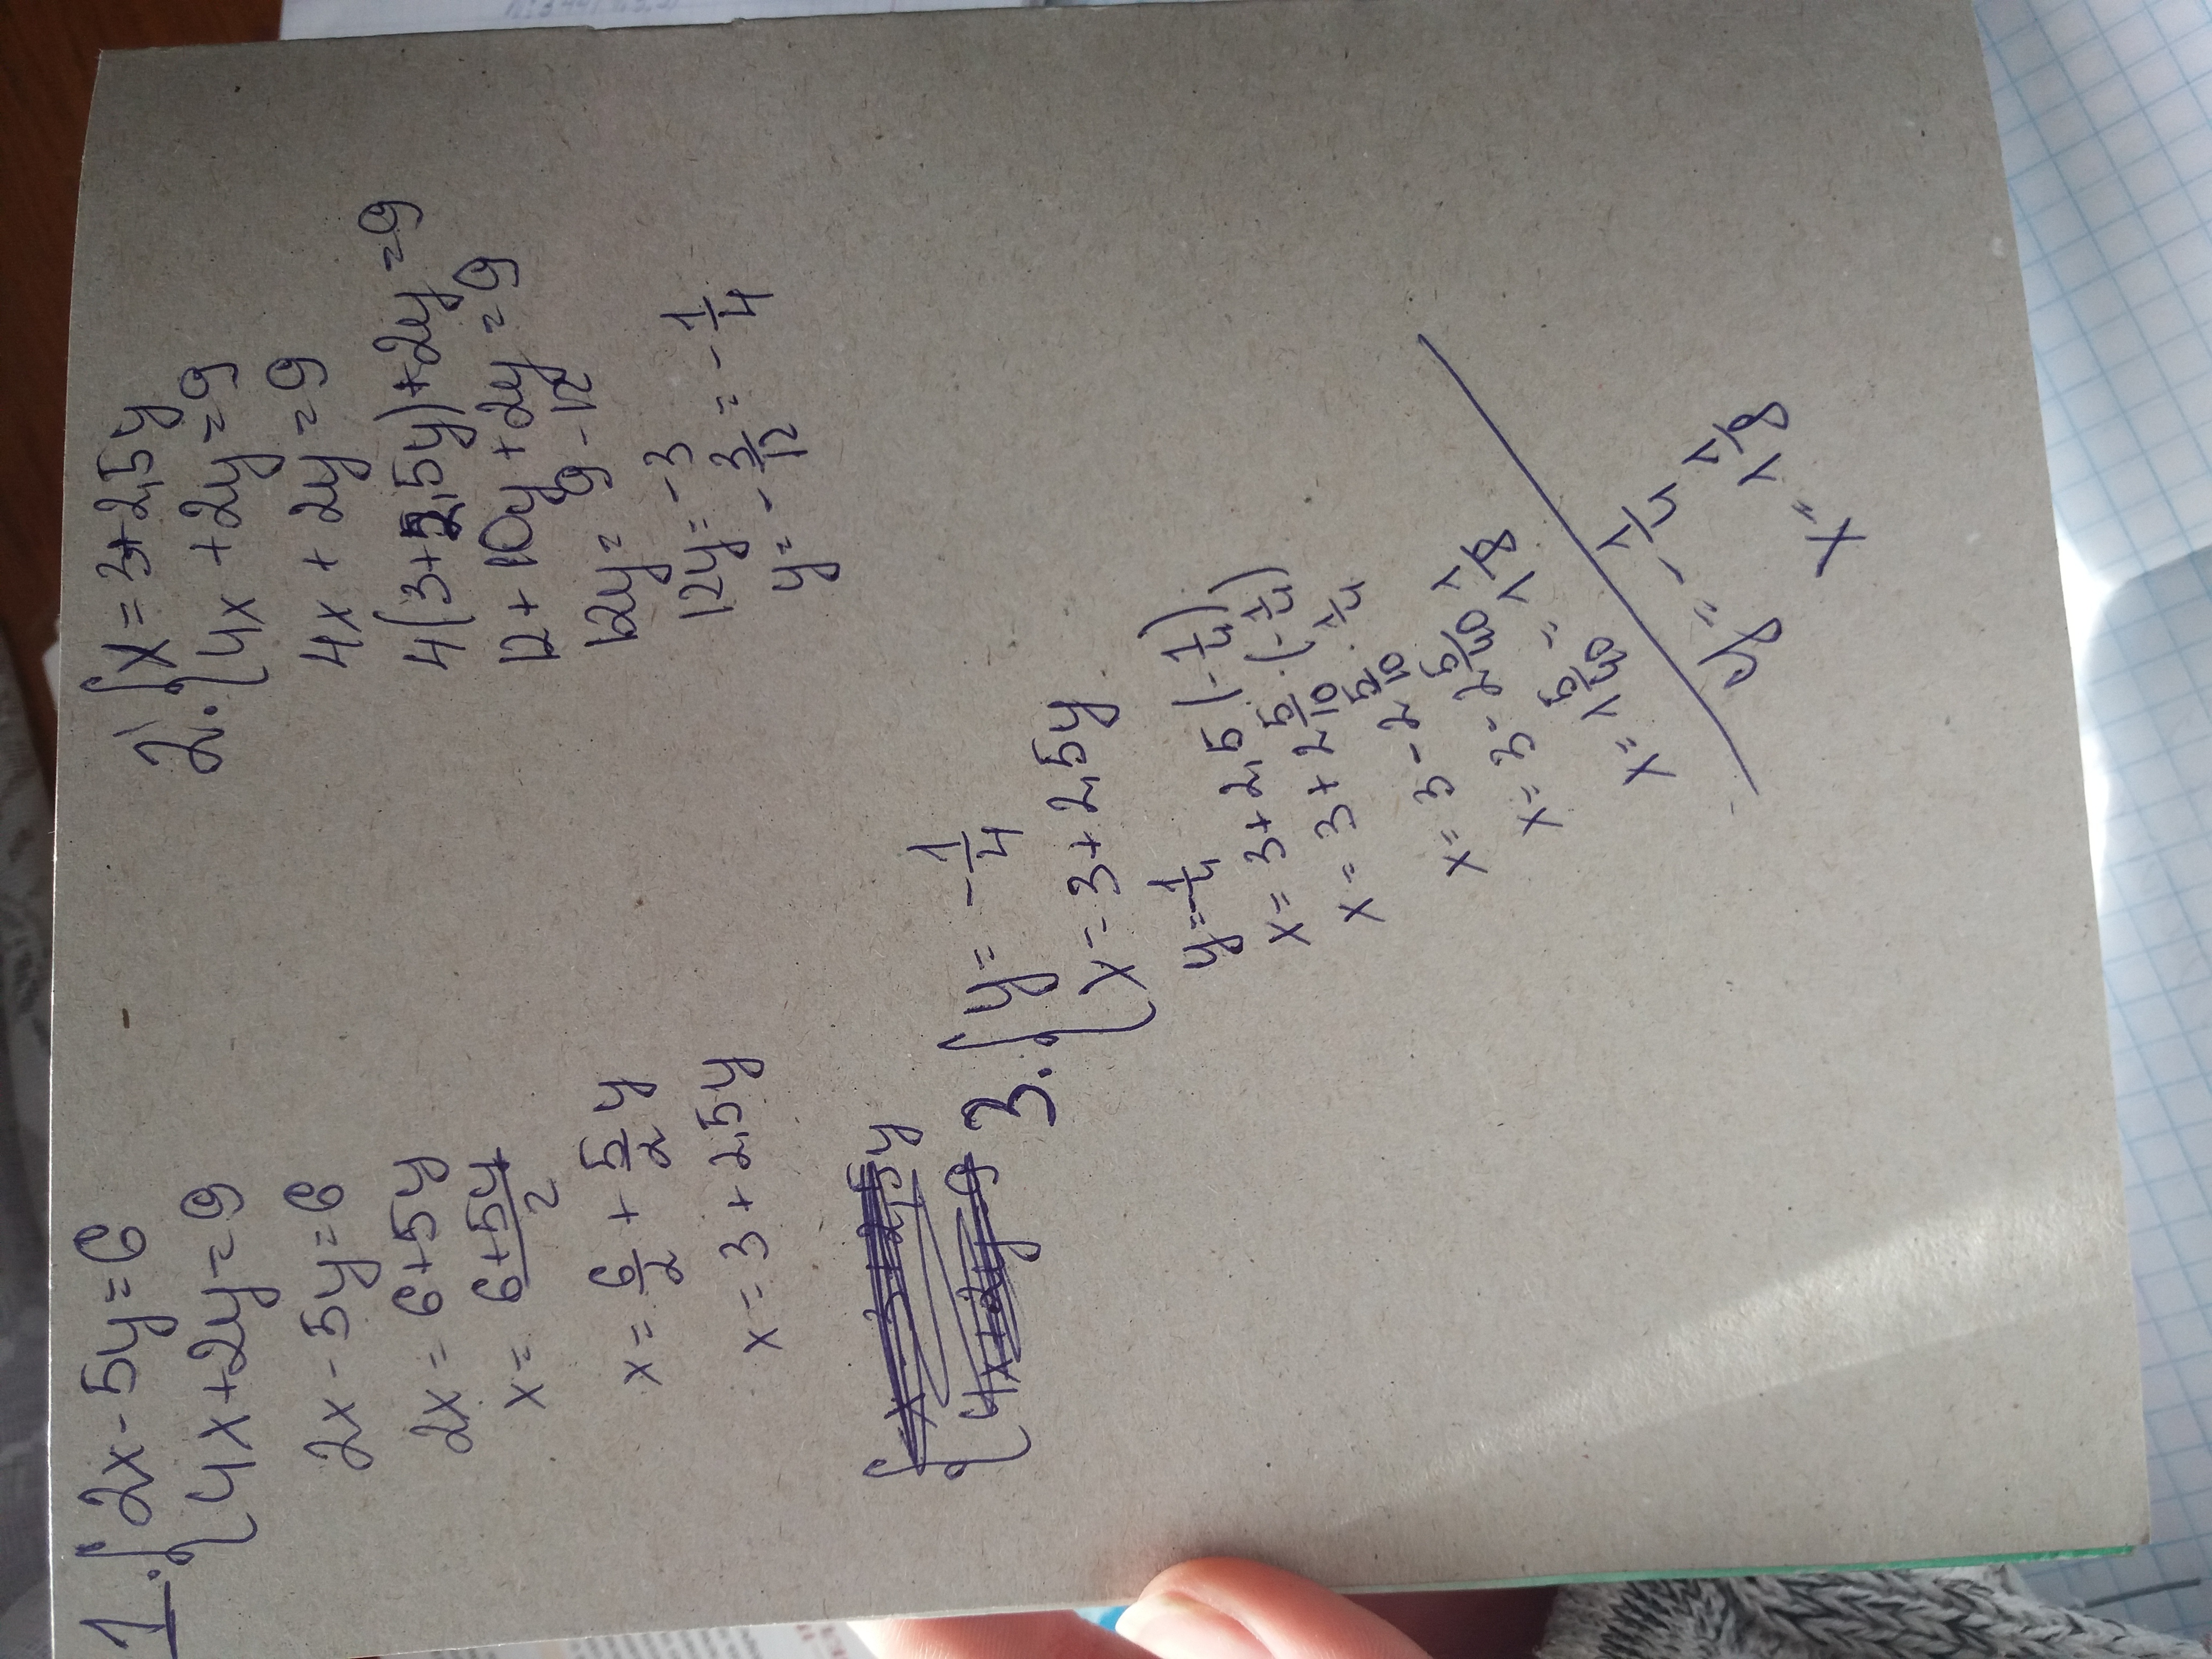 1. {2x - 5y = 6
{4x + 2y = 9
2x - 5y = 6
2x = 6 + 5y
x = (6 + 5y)/2
x = 6/2 + 5/2 y
x = 3 + 2,5y
2. {x = 3 + 2,5y
{4x + 2y = 9
4x + 2y = 9
4(3 + 2,5y) + 2y = 9
12 + 10y + 2y = 9
12y = 9 - 12
12y = -3
y = -3/12 = -1/4
3. {y = -1/4
{x = 3 + 2,5y
y = -1/4
x = 3 + 2,5(-1/4)
x = 3 + 2 5/10 · (-1/4)
x = 3 - 2 5/10 · 1/4
x = 3 - 2 5/40
x = 1 5/40 = 1 1/8
y = -1/4
x = 1 1/8